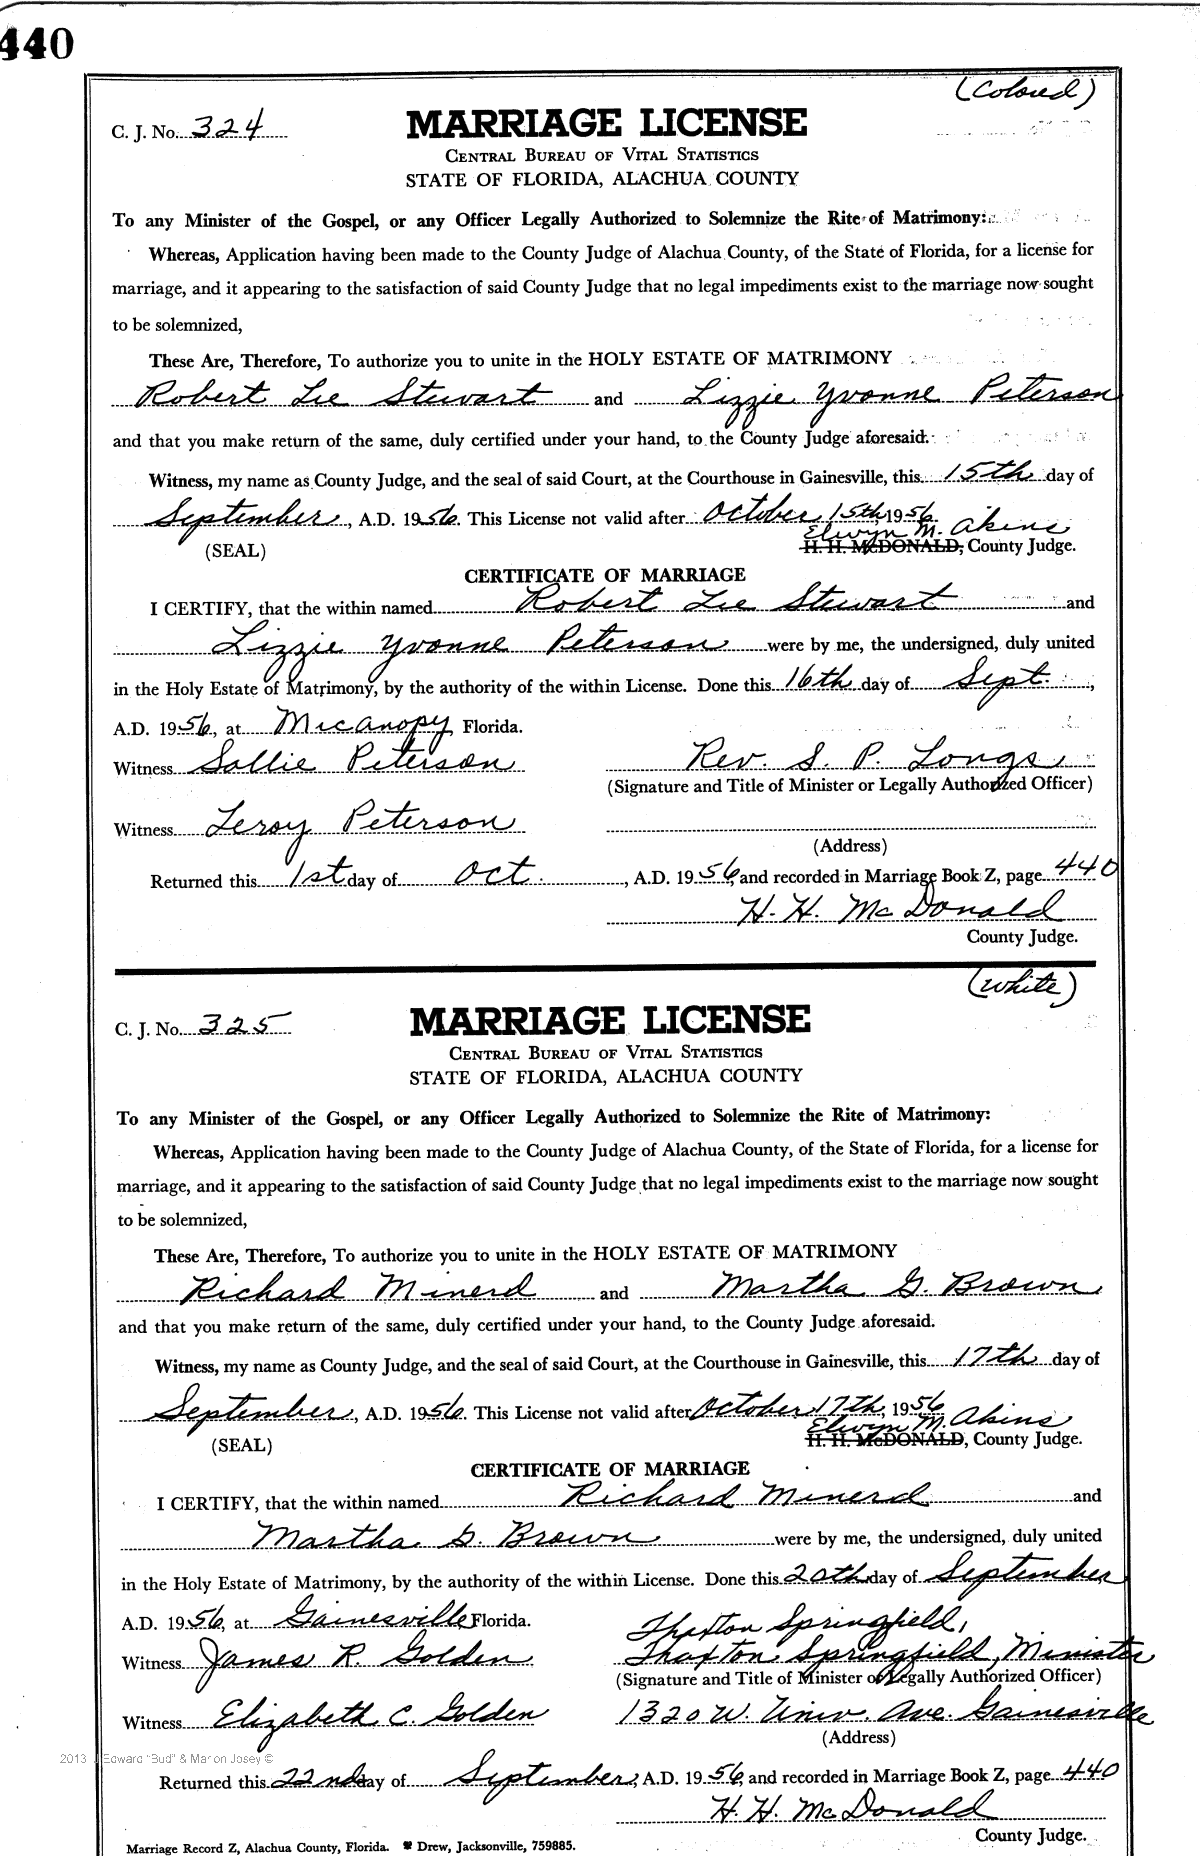 440
(Colored)
C. J. No. 324
MARRIAGE LICENSE
CENTRAL BUREAU OF VITAL STATISTICS
STATE OF FLORIDA, ALACHUA COUNTY
To any Minister of the Gospel, or any Officer Legally Authorized to Solemnize the Rite of Matrimony:
Whereas, Application having been made to the County Judge of Alachua County, of the State of Florida, for a license for
marriage, and it appearing to the satisfaction of said County Judge that no legal impediments exist to the marriage now sought
to be solemnized,
These Are, Therefore, To authorize you to unite in the HOLY ESTATE OF MATRIMONY
Robert Lee Stewart and Lizzie Yvonne Peterson
and that you make return of the same, duly certified under your hand, to the County Judge aforesaid.
Witness, my name as County Judge, and the seal of said Court, at the Courthouse in Gainesville, this 15th day of
September, A.D. 1956. This License not valid after October 15th, 1956.
Elwyn M. Akins
(SEAL) H. H. McDONALD, County Judge.
CERTIFICATE OF MARRIAGE
I CERTIFY, that the within named Robert Lee Stewart and
Lizzie Yvonne Peterson were by me, the undersigned, duly united
in the Holy Estate of Matrimony, by the authority of the within License. Done this 16th day of Sept.,
A.D. 1956, at Micanopy, Florida.
Witness Sallie Peterson Rev. S. P. Longs
(Signature and Title of Minister or Legally Authorized Officer)
Witness Leroy Peterson
(Address)
Returned this 1st day of Oct., A.D. 1956, and recorded in Marriage Book Z, page 440
H. H. McDonald
County Judge.
(White)
C. J. No. 325
MARRIAGE LICENSE
CENTRAL BUREAU OF VITAL STATISTICS
STATE OF FLORIDA, ALACHUA COUNTY
To any Minister of the Gospel, or any Officer Legally Authorized to Solemnize the Rite of Matrimony:
Whereas, Application having been made to the County Judge of Alachua County, of the State of Florida, for a license for
marriage, and it appearing to the satisfaction of said County Judge that no legal impediments exist to the marriage now sought
to be solemnized,
These Are, Therefore, To authorize you to unite in the HOLY ESTATE OF MATRIMONY
Richard Minerd and Martha G. Brown
and that you make return of the same, duly certified under your hand, to the County Judge aforesaid.
Witness, my name as County Judge, and the seal of said Court, at the Courthouse in Gainesville, this 17th day of
September, A.D. 1956. This License not valid after October 17th, 1956
Elwyn M. Akins
(SEAL) H. H. McDONALD, County Judge.
CERTIFICATE OF MARRIAGE
I CERTIFY, that the within named Richard Minerd and
Martha G. Brown were by me, the undersigned, duly united
in the Holy Estate of Matrimony, by the authority of the within License. Done this 20th day of September,
A.D. 1956, at Gainesville Florida. Thaxton Springfield,
Witness James R. Golden Thaxton Springfield, Minister
(Signature and Title of Minister or Legally Authorized Officer)
Witness Elizabeth C. Golden 1320 W. Univ. Ave. Gainesville
(Address)
2013 J Edward "Bud" & Marion Josey ©
Returned this 22nd day of September, A.D. 1956, and recorded in Marriage Book Z, page 440
H. H. McDonald
County Judge.
Marriage Record Z, Alachua County, Florida. Drew, Jacksonville, 759885.